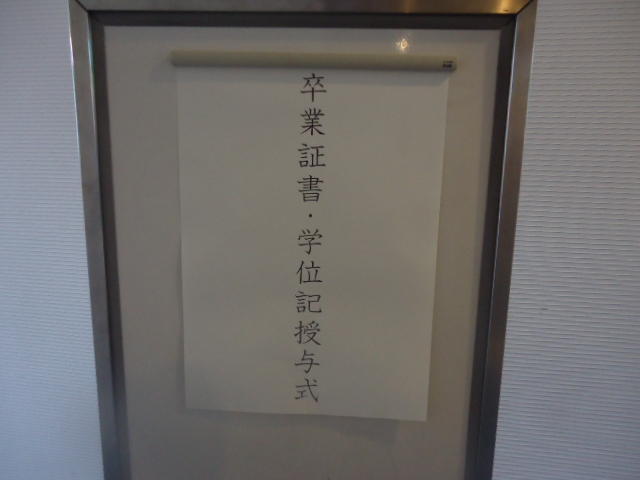 卒業証書・学位記授与式